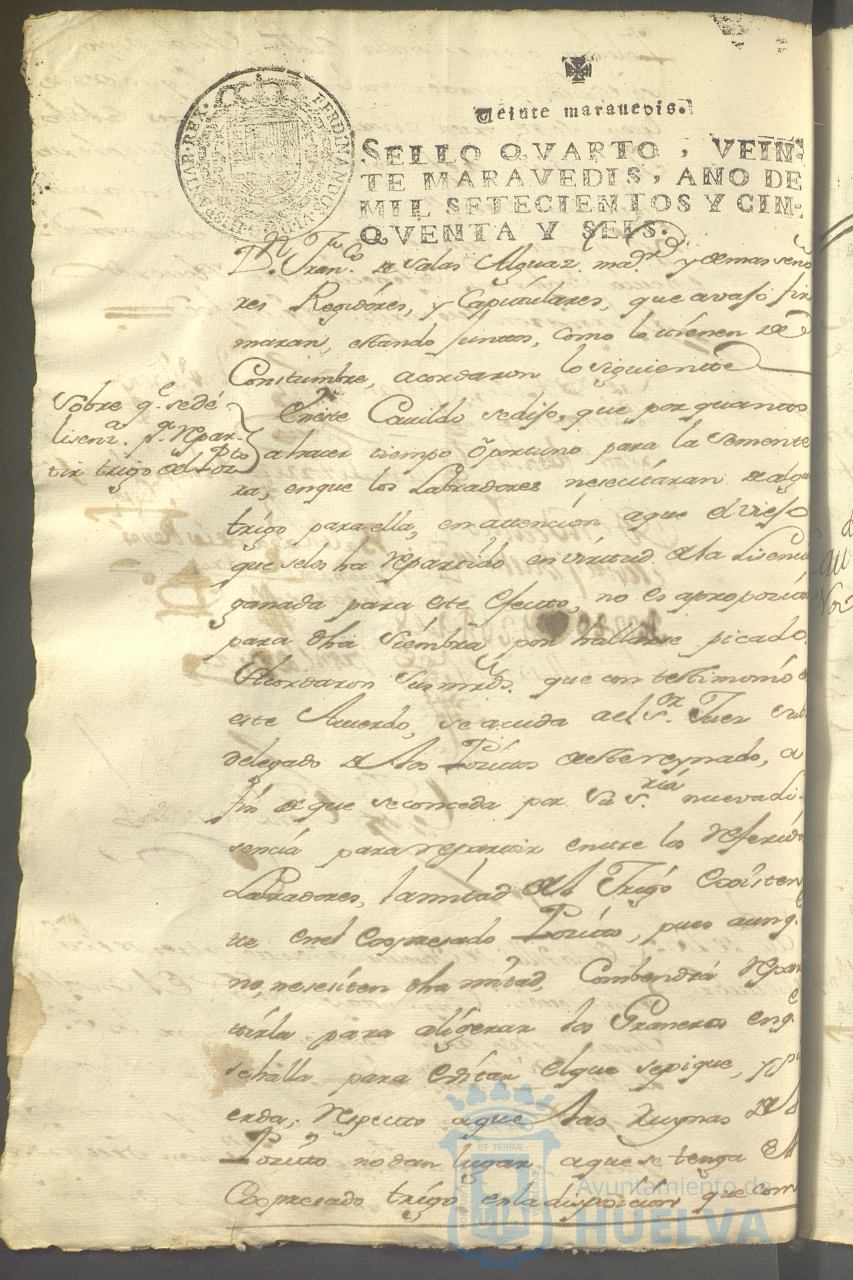 FERDINANDUS VI D G HISPANIAR REX
Veinte marauedis.
SELLO QVARTO, VEIN-
TE MARAVEDIS, AÑO DE
MIL SETECIENTOS Y CIN-
QVENTA Y SEIS.
Dn Franco de Salas Alguaz. mar y demas seño
res Regidores, y Capitulares, que avajo fir
maran, estando juntos, como lo tienen de
Constumbre, acordaron lo siguiente
Sobre qe se dé
lisena pa repar-
tir trigo del Pto
En este Cavildo se dijo, que por quanto
a hacer tiempo oportuno para la semente
ra, en que los Labradores nesecitaran de algn
trigo para ella, en attención a que el viejo
que seles ha repartido en virtud de la Lisencia
ganada para este efecto, no es aproposito
para dha siembra por hallarse picado.
Acordaron sus mrds. que con testimonio de
este Acuerdo, se acuda a el Sor Juez sub
delegado de los Positos deste reynado, a
fin de que se conceda por su Sría nueva li
sencia para repartir entre los referidos
Labradores, la mitad del Trigo existen
te en el Expresado Posito, pues aunqe
no, nesesiten dha mitad, Combendrá repar
tirla para aligerar los Graneros en qe
se halla para evitar el que se pique, y pi
erda; respecto a que las ruynas del
Posito no dan lugar a que se tenga el
Expresado trigo en la disposición que com
Ayuntamiento de
HUELVA
ET TERRÆ